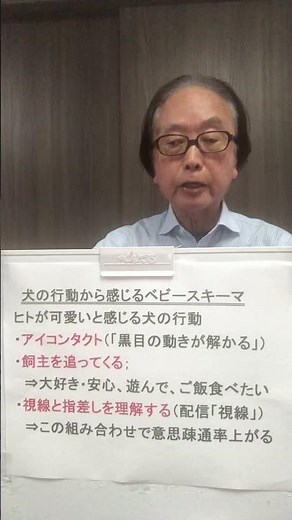 犬の行動から感じるベビースキーマ
ヒトが可愛いと感じる犬の行動
・アイコンタクト(「黒目の動きが解かる」)
・飼主を追ってくる;
⇒大好き・安心、遊んで、ご飯食べたい
・視線と指差しを理解する(配信「視線」)
⇒この組み合わせで意思疎通率上がる